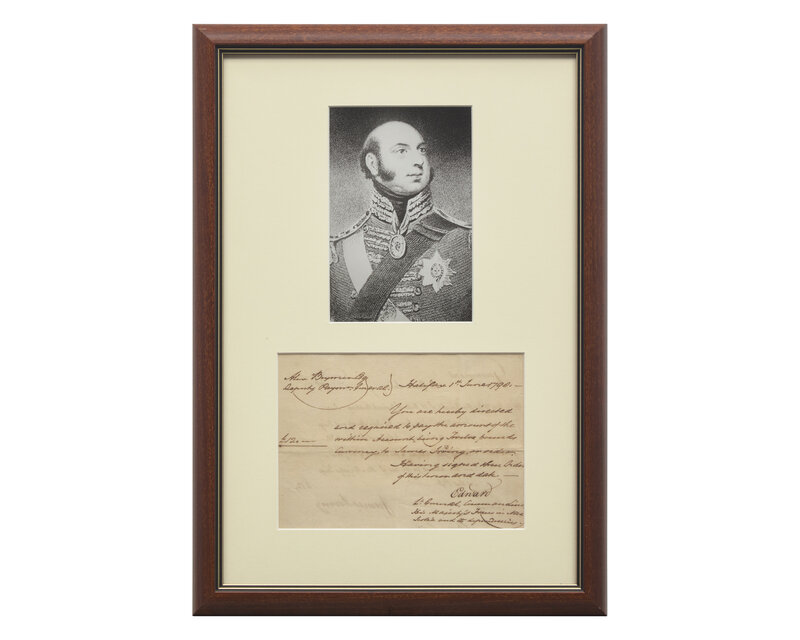 Halifax 1st June 1798.—
Deputy Paymr. General.
You are hereby directed
and required to pay the amount of the
within Account, being Twelve pounds
£12.—
Currency, to James Irving, or order.
Having signed three Orders
of this tenor and date.—
Edward
Lt. General, Commanding
His Majesty's Forces in Nova
Scotia and its dependencies.